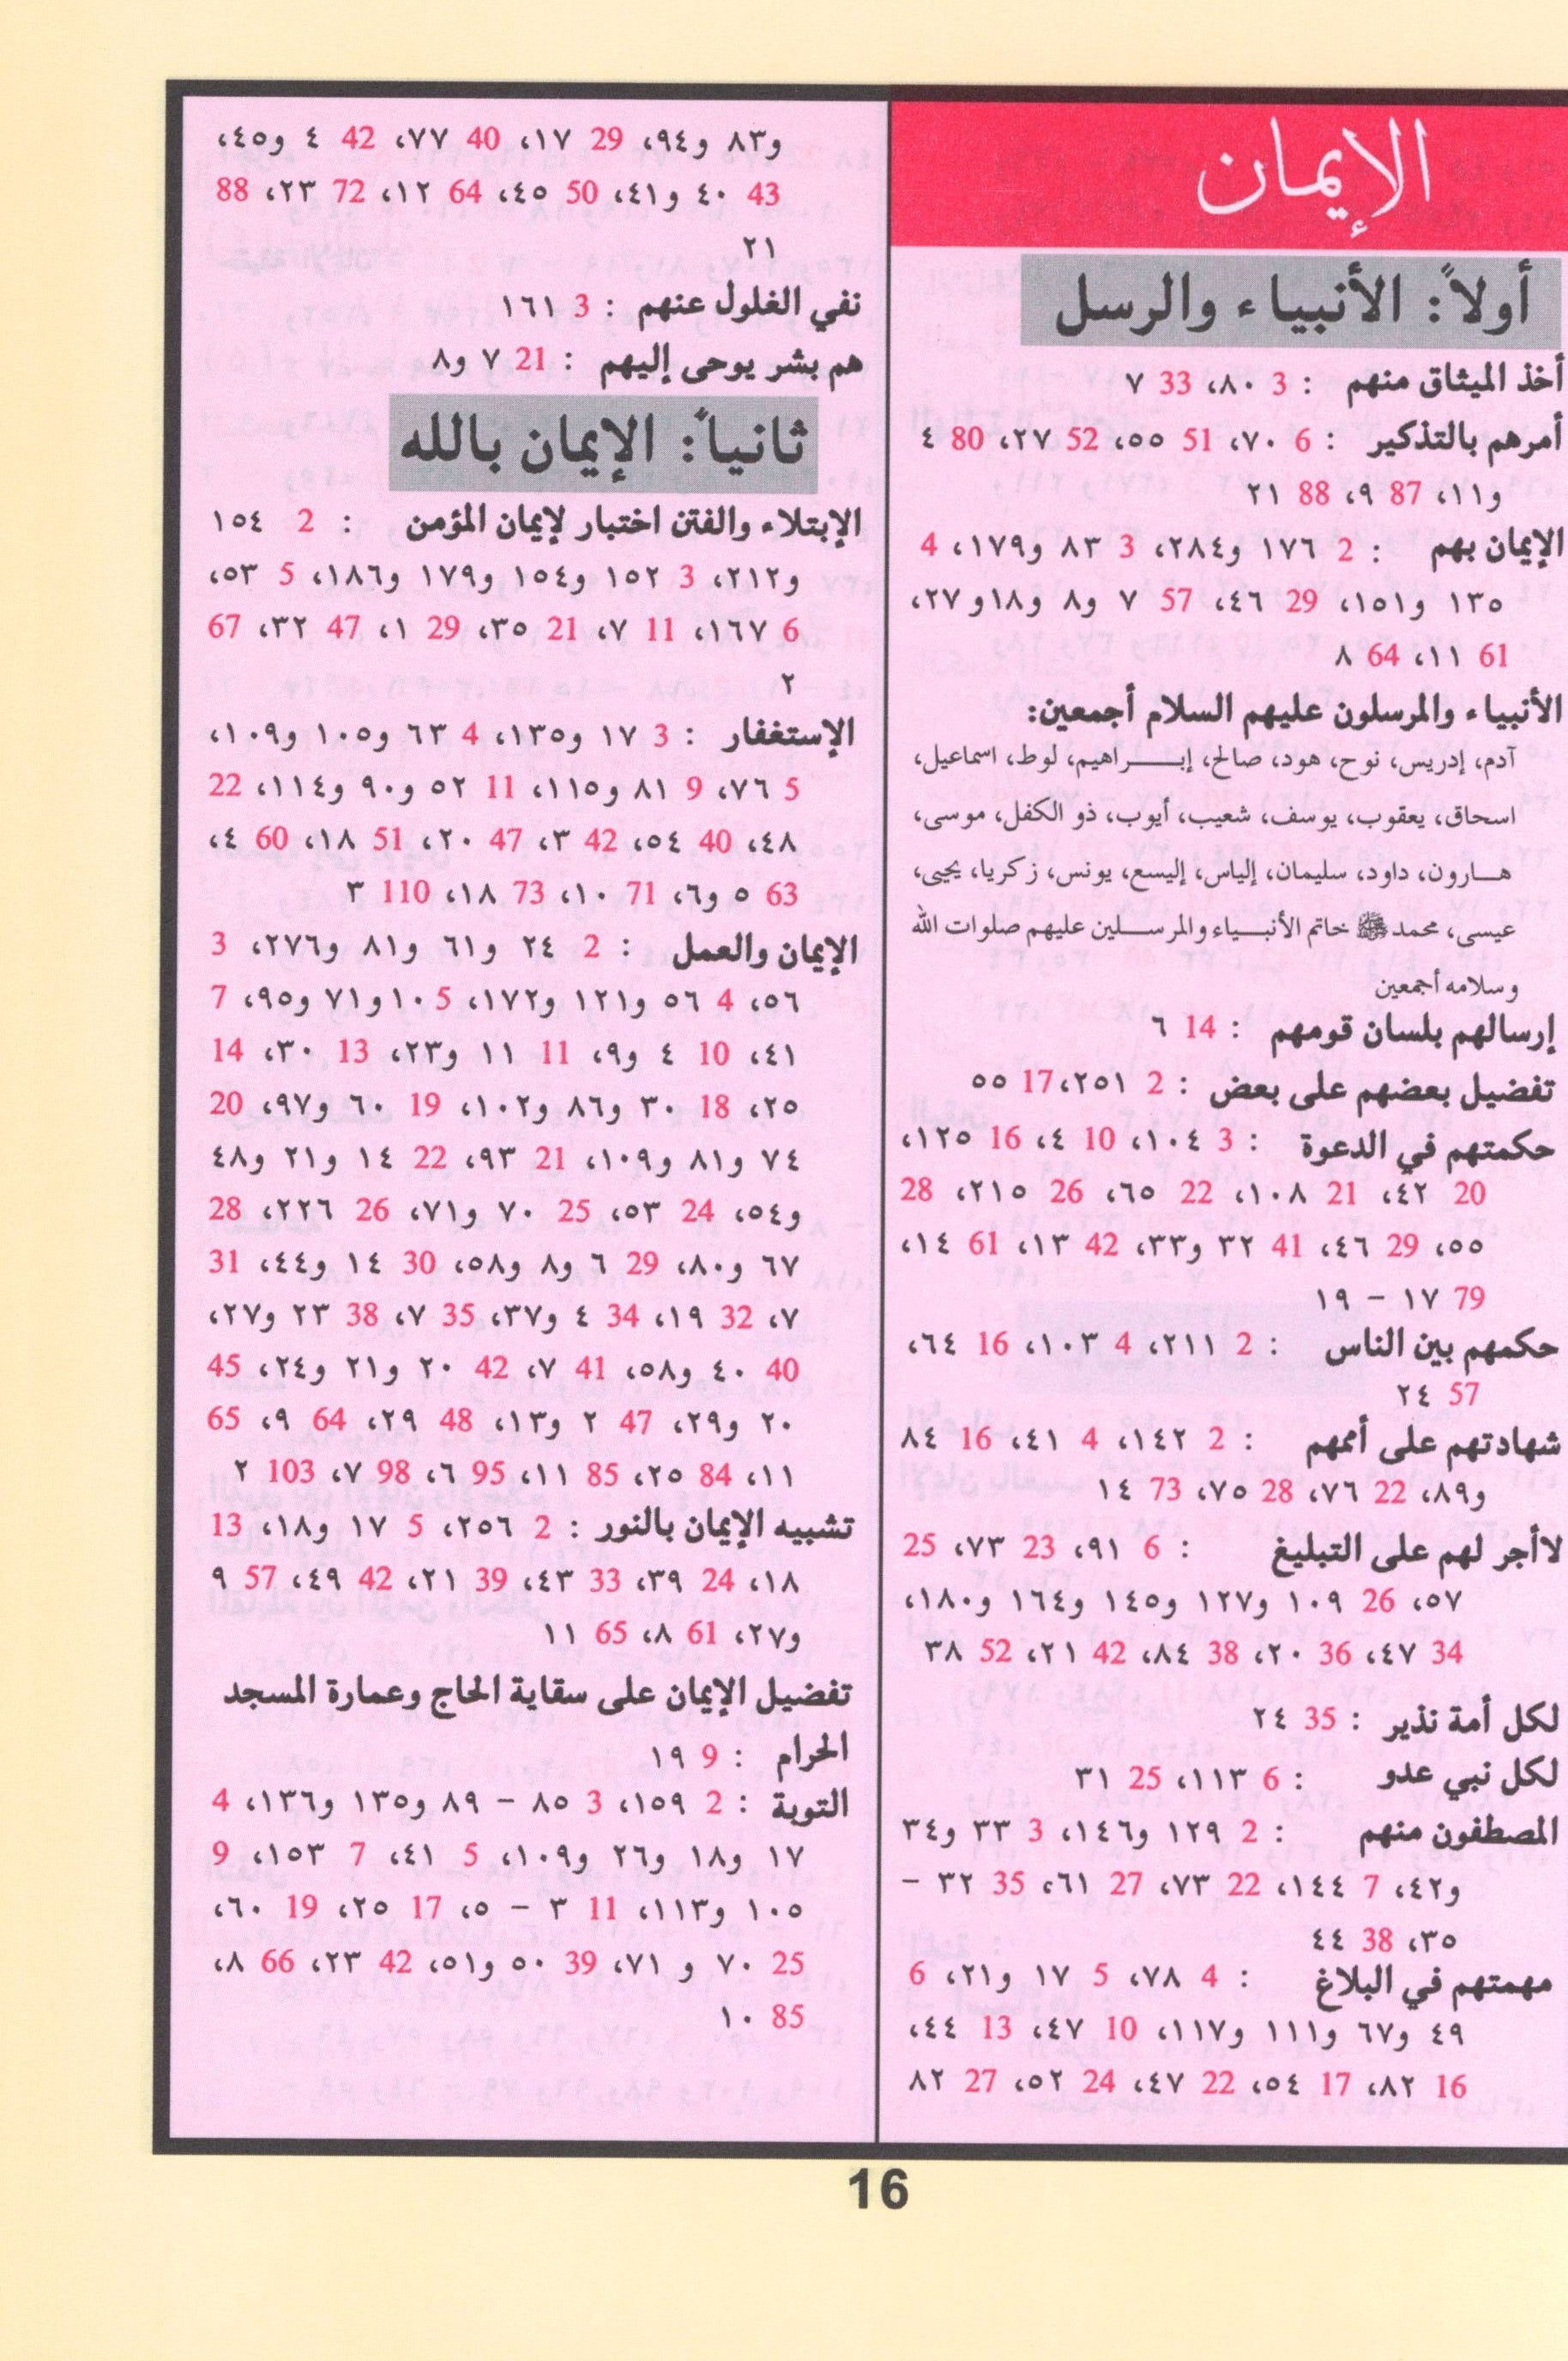 الإيمان
أولاً: الأنبياء والرسل
أخذ الميثاق منهم : 3 ٨٠، 33 ٧
أمرهم بالتذكير : 6 ٧٠، 51 ٥٥، 52 ٢٧، 80 ٤
و١١، 87 ٩، 88 ٢١
الإيمان بهم : 2 ١٧٦ و٢٨٤، 3 ٨٣ و١٧٩، 4
١٣٥ و١٥١، 29 ٤٦، 57 ٧ و٨ و١٨و٢٧،
61 ١١، 64 ٨
الأنبياء والمرسلون عليهم السلام أجمعين:
آدم، إدريس، نوح، هود، صالح، إبـــراهيم، لوط، اسماعيل،
اسحاق، يعقوب، يوسف، شعيب، أيوب، ذو الكفل، موسى،
هـارون، داود، سليمان، إلياس، إليسع، يونس، زكريا، يحيى،
عيسى، محمد ﷺ خاتم الأنبـــياء والمرســـلين عليهم صلوات الله
وسلامه أجمعين
إرسالهم بلسان قومهم : 14 ٦
تفضيل بعضهم على بعض : 2 ٢٥١، 17 ٥٥
حكمتهم في الدعوة : 3 ١٠٤، 10 ٤، 16 ١٢٥،
20 ٤٢، 21 ١٠٨، 22 ٦٥، 26 ٢١٥، 28
٥٥، 29 ٤٦، 41 ٣٢ و٣٣، 42 ١٣، 61 ١٤،
79 ١٧ - ١٩
حكمهم بين الناس : 2 ٢١١، 4 ١٠٣، 16 ٦٤،
57 ٢٤
شهادتهم على أممهم : 2 ١٤٢، 4 ٤١، 16 ٨٤
و٨٩، 22 ٧٦، 28 ٧٥، 73 ١٤
لاأجر لهم على التبليغ : 6 ٩١، 23 ٧٣، 25
٥٧، 26 ١٠٩ و١٢٧ و١٤٥ و١٦٤ و١٨٠،
34 ٤٧، 36 ٢٠، 38 ٨٤، 42 ٢١، 52 ٣٨
لكل أمة نذير : 35 ٢٤
لكل نبي عدو : 6 ١١٣، 25 ٣١
المصطفون منهم : 2 ١٢٩ و١٤٦، 3 ٣٣ و٣٤
و٤٢، 7 ١٤٤، 22 ٧٣، 27 ٦١، 35 ٣٢ -
٣٥، 38 ٤٤
مهمتهم في البلاغ : 4 ٧٨، 5 ١٧ و٢١، 6
٤٩ و٦٧ و١١١ و١١٧، 10 ٤٧، 13 ٤٤،
16 ٨٢، 17 ٥٤، 22 ٤٧، 24 ٥٢، 27 ٨٢
و٨٣ و٩٤، 29 ١٧، 40 ٧٧، 42 ٤ و٤٥،
43 ٤٠ و٤١، 50 ٤٥، 64 ١٢، 72 ٢٣، 88
٢١
نفي الغلول عنهم : 3 ١٦١
هم بشر يوحى إليهم : 21 ٧ و٨
ثانياً: الإيمان بالله
الإبتلاء والفتن اختبار لإيمان المؤمن : 2 ١٥٤
و٢١٢، 3 ١٥٢ و١٥٤ و١٧٩ و١٨٦، 5 ٥٣،
6 ١٦٧، 11 ٧، 21 ٣٥، 29 ١، 47 ٣٢، 67
٢
الإستغفار : 3 ١٧ و١٣٥، 4 ٦٣ و١٠٥ و١٠٩،
5 ٧٦، 9 ٨١ و١١٥، 11 ٥٢ و٩٠ و١١٤، 22
٤٨، 40 ٥٤، 42 ٣، 47 ٢٠، 51 ١٨، 60 ٤،
63 ٥ و٦، 71 ١٠، 73 ١٨، 110 ٣
الإيمان والعمل : 2 ٢٤ و٦١ و٨١ و٢٧٦، 3
٥٦، 4 ٥٦ و١٢١ و١٧٢، 5 ١٠و٧١ و٩٥، 7
٤١، 10 ٤ و٩، 11 ١١ و٢٣، 13 ٣٠، 14
٢٥، 18 ٣٠ و٨٦ و١٠٢، 19 ٦٠ و٩٧، 20
٧٤ و٨١ و١٠٩، 21 ٩٣، 22 ١٤ و٢١ و٤٨
و٥٤، 24 ٥٣، 25 ٧٠ و٧١، 26 ٢٢٦، 28
٦٧ و٨٠، 29 ٦ و٨ و٥٨، 30 ١٤ و٤٤، 31
٧، 32 ١٩، 34 ٤ و٣٧، 35 ٧، 38 ٢٣ و٢٧،
40 ٤٠ و٥٨، 41 ٧، 42 ٢٠ و٢١ و٢٤، 45
٢٠ و٢٩، 47 ٢ و١٣، 48 ٢٩، 64 ٩، 65
١١، 84 ٢٥، 85 ١١، 95 ٦، 98 ٧، 103 ٢
تشبيه الإيمان بالنور : 2 ٢٥٦، 5 ١٧ و١٨، 13
١٨، 24 ٣٩، 33 ٤٣، 39 ٢١، 42 ٤٩، 57 ٩
و٢٧، 61 ٨، 65 ١١
تفضيل الإيمان على سقاية الحاج وعمارة المسجد
الحرام : 9 ١٩
التوبة : 2 ١٥٩، 3 ٨٥ - ٨٩ و١٣٥ و١٣٦، 4
١٧ و١٨ و٢٦ و١٠٩، 5 ٤١، 7 ١٥٣، 9
١٠٥ و١١٣، 11 ٣ - ٥، 17 ٢٥، 19 ٦٠،
25 ٧٠ و ٧١، 39 ٥٠ و٥١، 42 ٢٣، 66 ٨،
85 ١٠
16